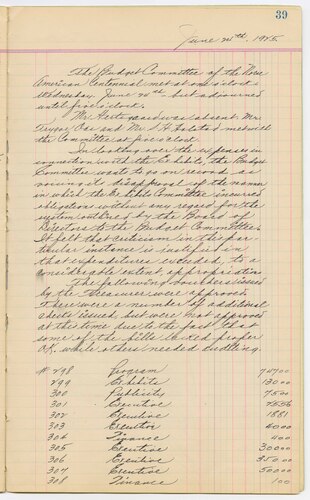 39
June 24th, 1925.
The Budget Committee of the Norse
American Centennial met at one o'clock
Wednesday, June 24th - but adjourned
until five o'clock.
Mr. was absent. Mrs.
Trygve Oas and Mr. S. H. Holstad met with
the Committee at five o'clock
In looking over the expenses in
connection with the Exhibits, the Budget
Committee want to go on record as
voicing its disapproval of the manner
in which the Exhibits Committee incurred
obligations without any regard for the
system outlined by the Board of
Directors to the Budget Committee.
It felt that criticism in this par-
ticular instance is justified in
that expenditures exceeded, to a
considerable extent, appropriation.
The following vouchers issued
by the Treasurer were approved.
There were a number of additional
checks issued, but were not approved
at this time due to the fact that
some of the bills lacked proper
O.K. while others needed auditing.
# 298 Program 747 00
299 Exhibits 130 00
300 Publicity 75 00
301 Executive
302 Executive 18 81
303 Executive 40 00
304 Finance 4 00
305 Executive 300 00
306 Executive 350 00
307 Executive 500 00
308 Finance 1 00